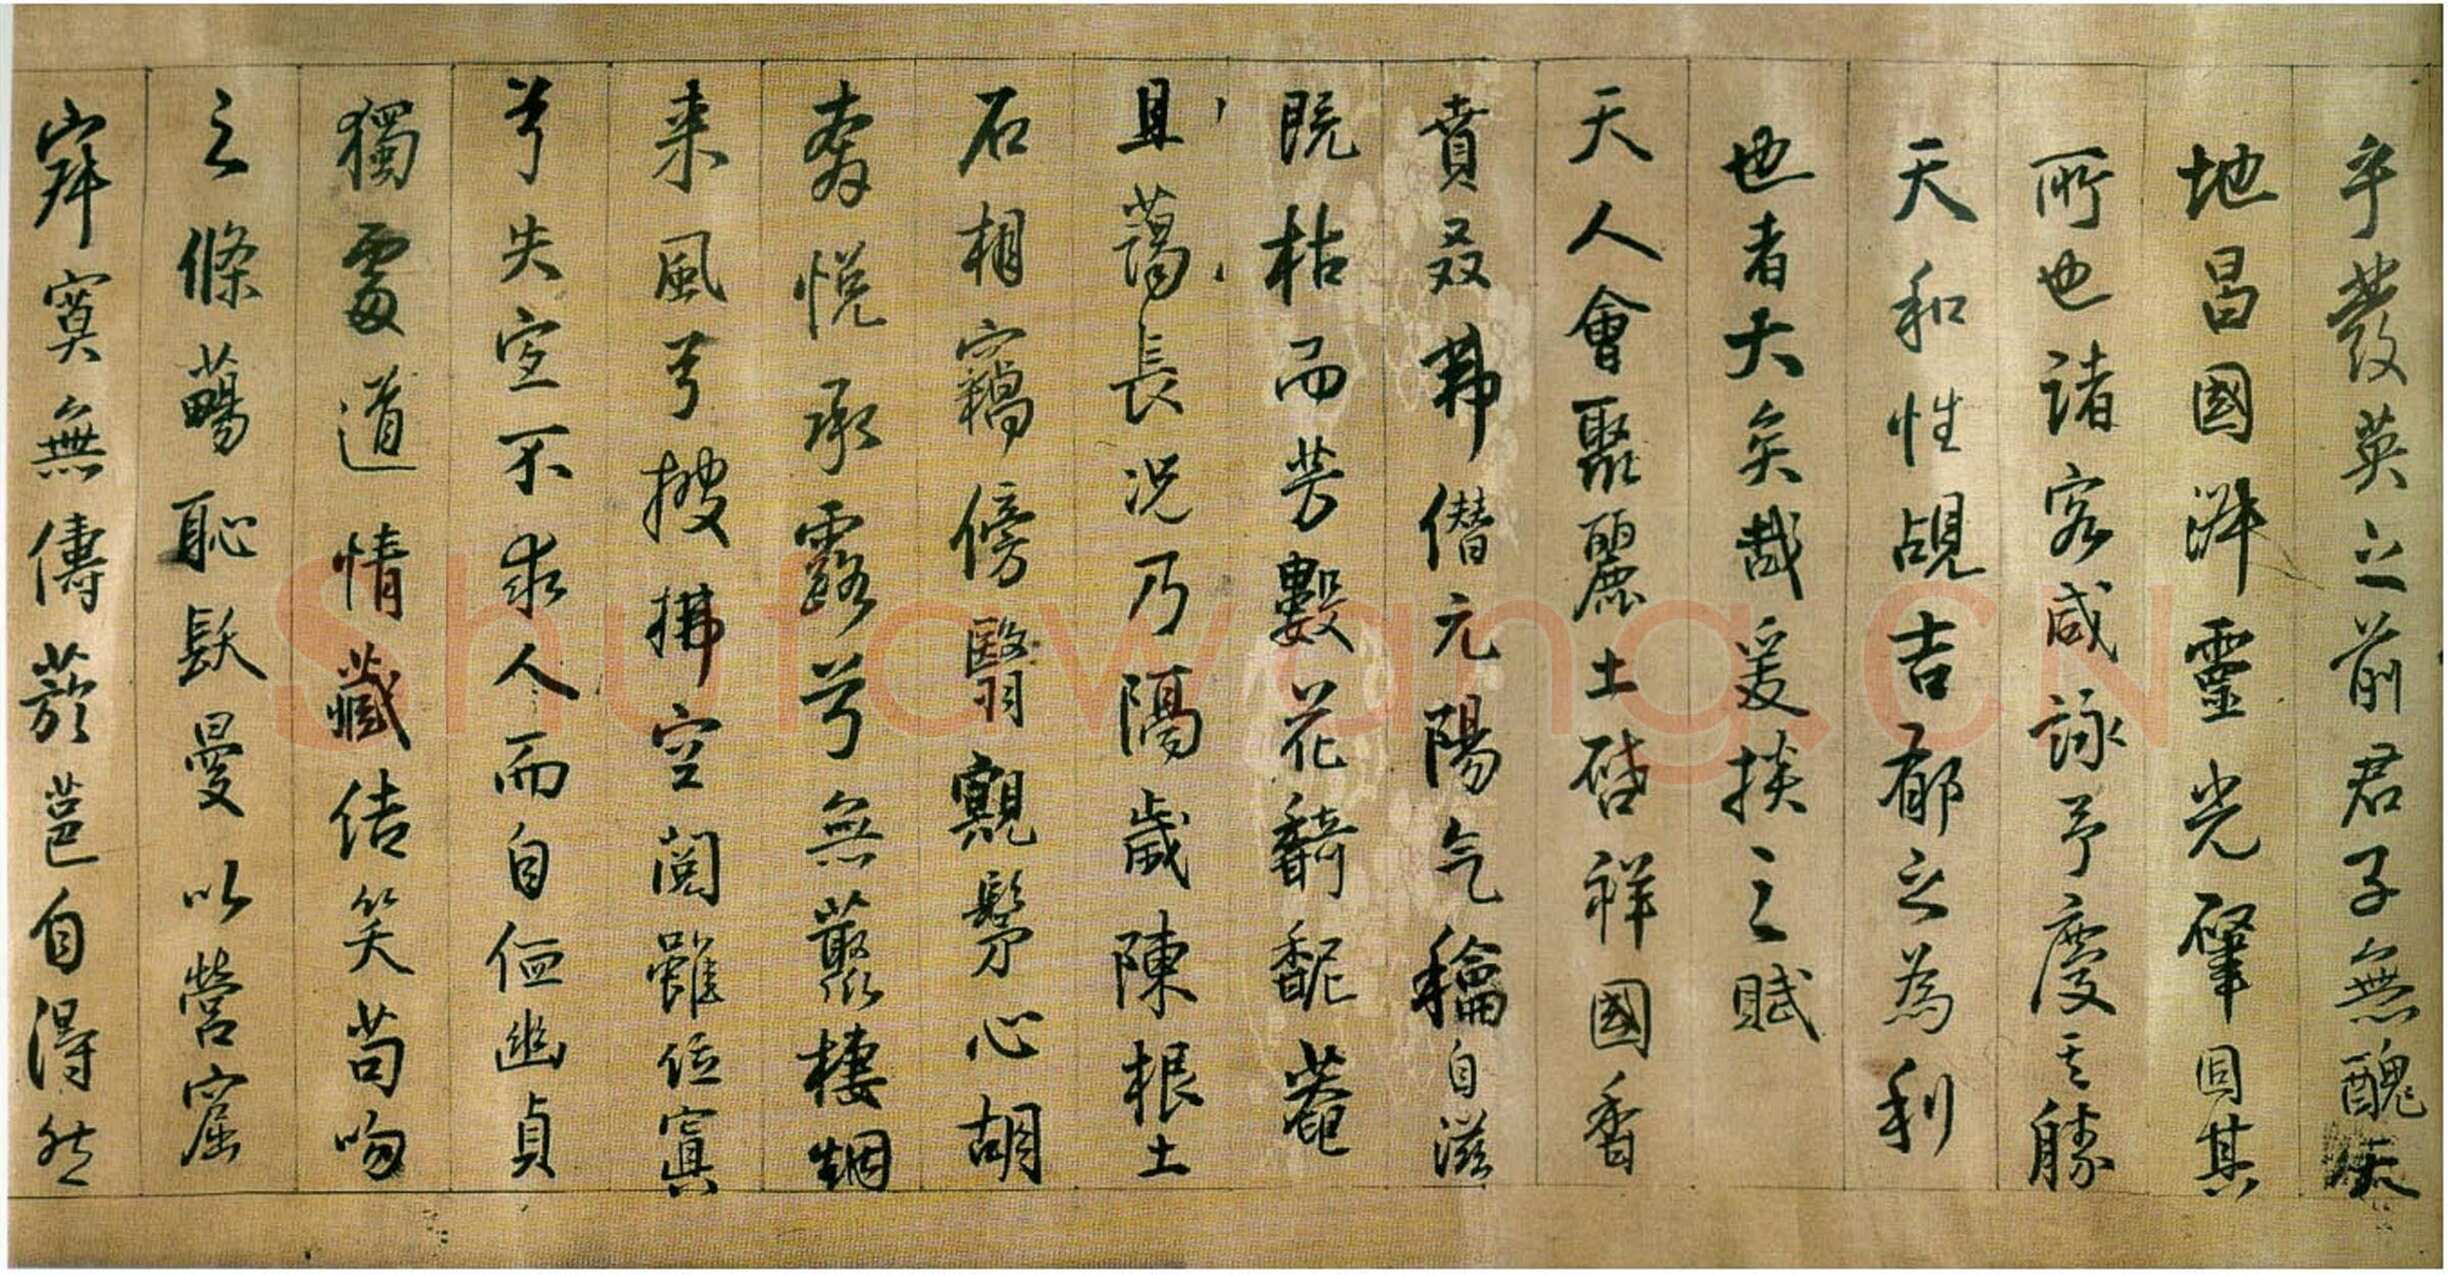 乎發英之前君子無醜
地昌國濴靈光肇固其
所也諸客咸詠予慶之勝
天和性覘吉郁之為利
也者大矣哉爰掞之賦
天人會聚麗土啓祥國香
賁叒茀僭元陽气稐自滋
既枯而芳數花馣馜菴
且蔼長况乃隔歲陳根土
石相竊傍翳覿髣心胡
奝悦承露兮無叢棲烟
来風兮披拂空閲雖位寘
兮失定不求人而自恆幽貞
獨處道情藏結笑苟吻
之條蔼恥镺曼以營窟
寂寞無傳菸邑自得然
Shufawang.CN